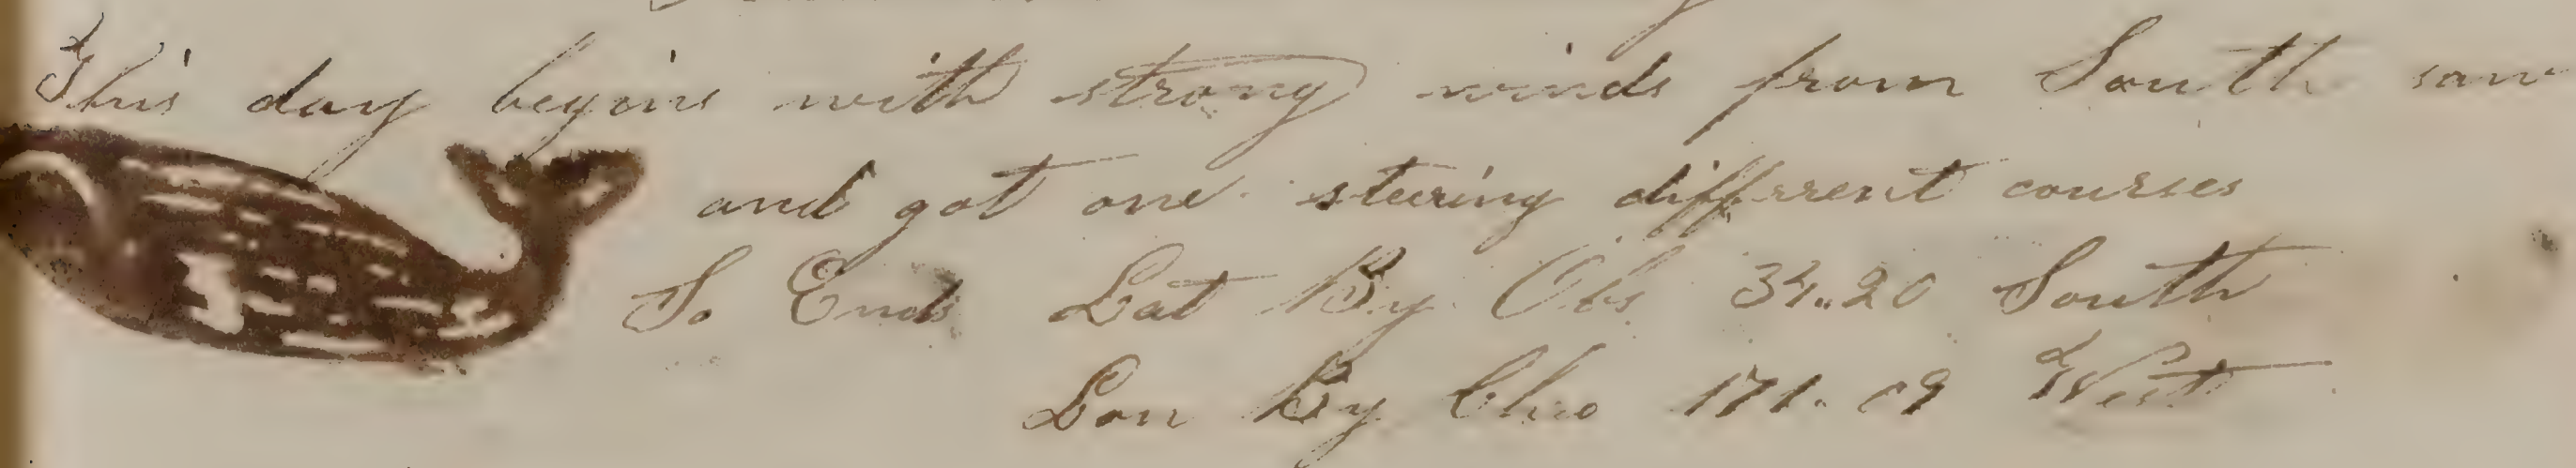 This day begins with strong winds from South saw
and got one steering different courses
So Ends Lat By Obs 34..20 South
Lon By Chro 171..09 West